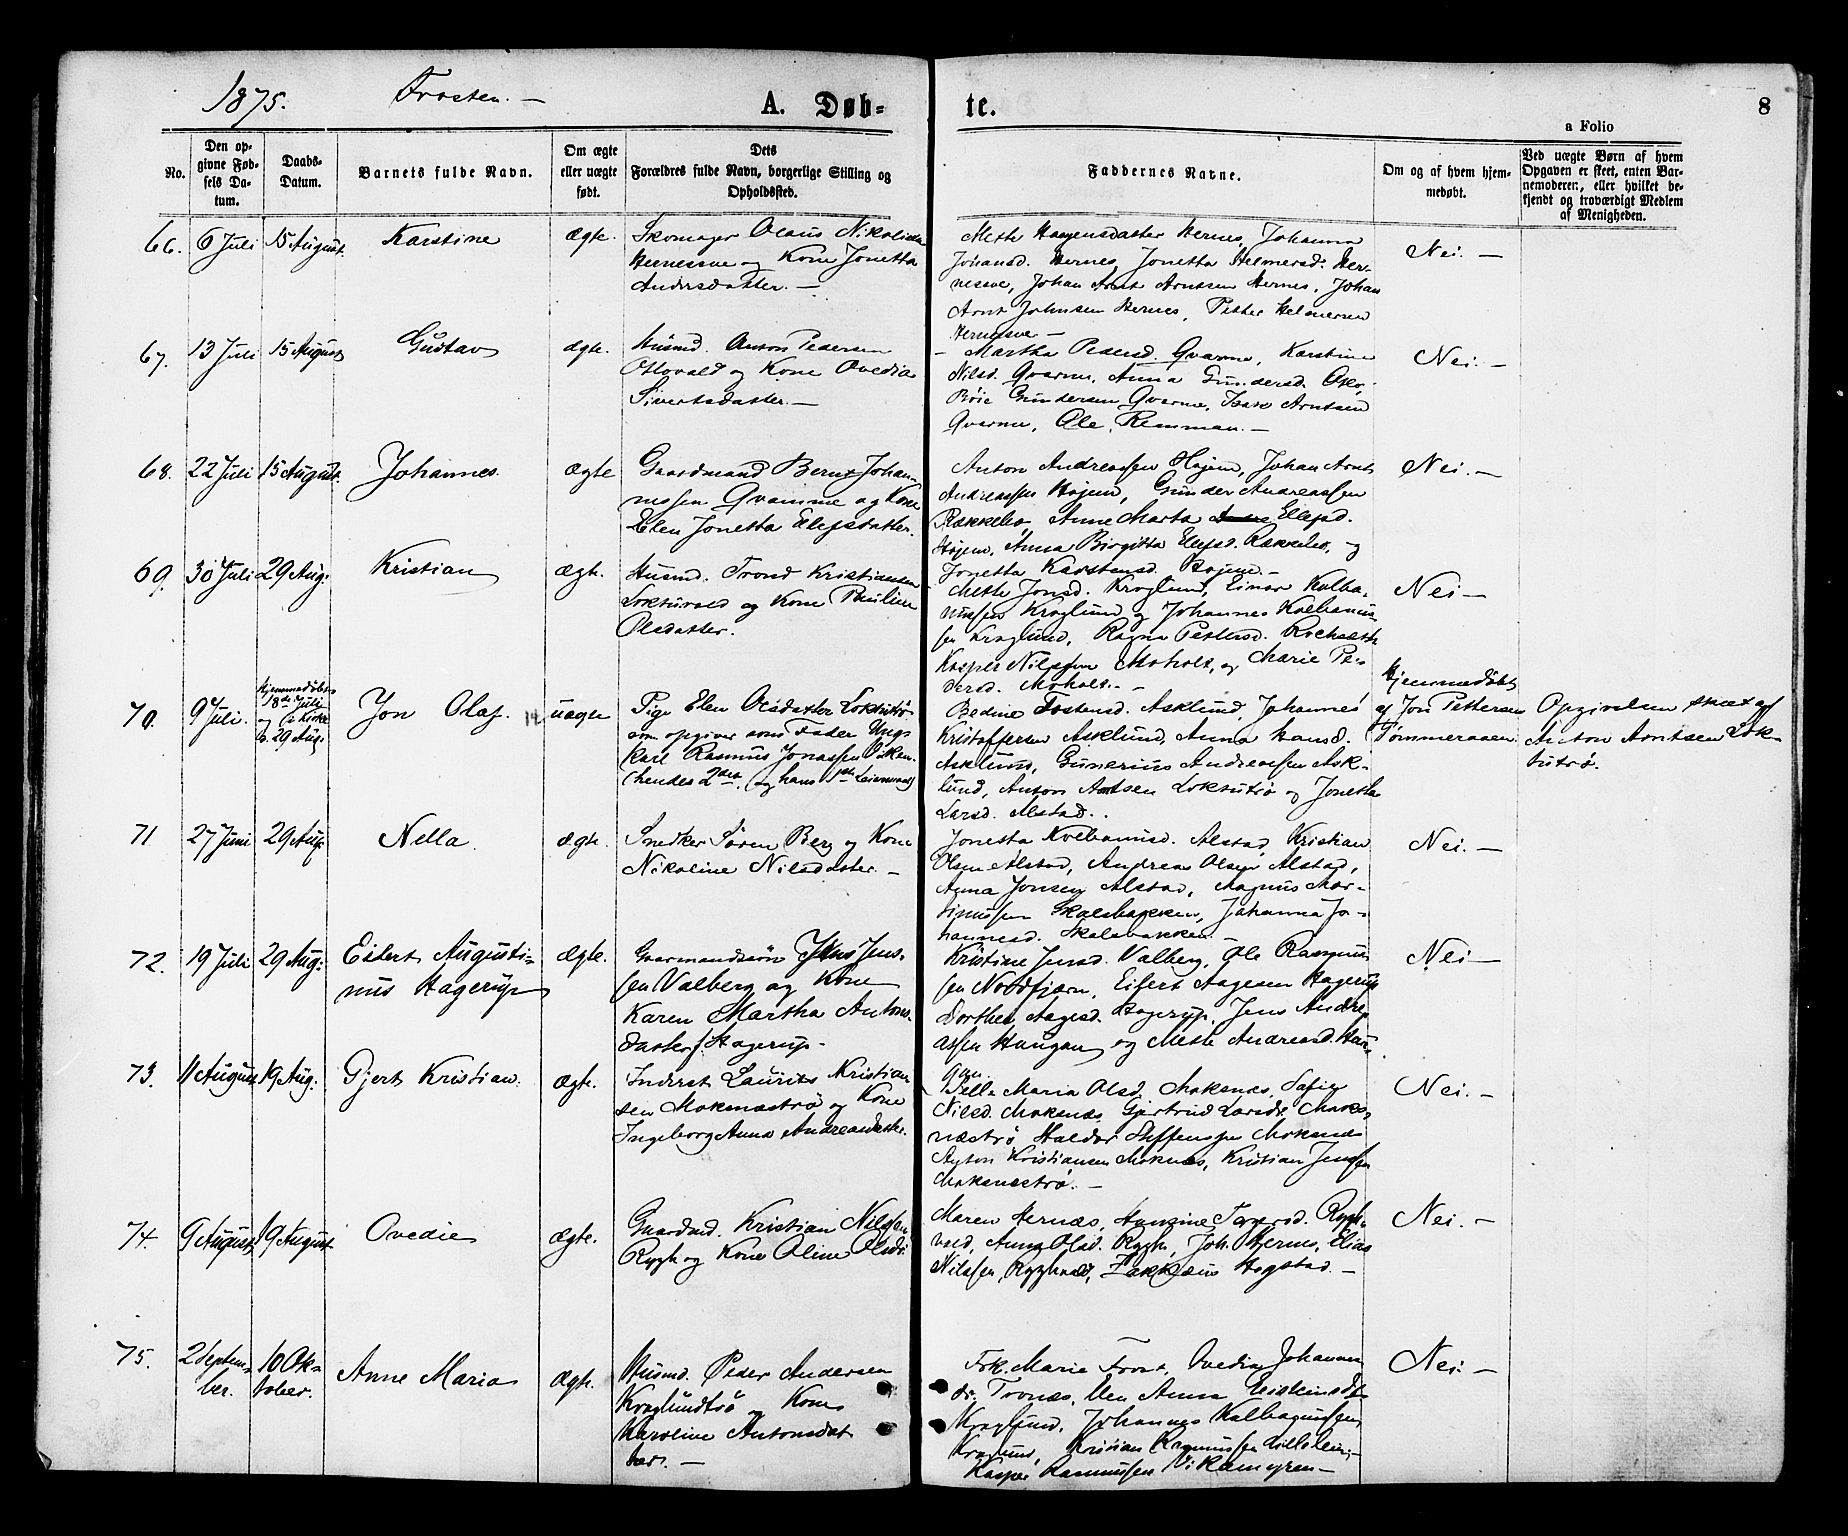 1875. Frosten. —
A. Døb-
te.
8
a Folio
No.
Den op-
givne Fød-
sels Da-
tum.
Daabs-
Datum.
Barnets fulde Navn.
Om ægte
eller uægte
født.
Dets
Forældres fulde Navn, borgerlige Stilling og
Opholdssted.
Faddernes Navne.
Om og af hvem hjem-
medøbt.
Ved uægte Børn af hvem
Opgaven er skeet, enten Bar-
nemoderen, eller hvilket be-
kjendt og troværdigt Medlem
af Menigheden.
66. 6 Juli 15 August. Karstine ægte.
Skomager Olaus Nikolisen
Hernesøve og Kone Jonetta
Andersdatter. —
Mette Haagensdatter Hernes, Johanna
Johansd. Hernes, Jonetta Helmersd. Her-
nesøve, Johan Arnt Arntsen Hernes, Johan
Arnt Johnsen Hernes, Petter Helmersen
Hernesøve —
Nei. —
67. 13 Juli 15 August Gustav ægte.
Husmd. Anton Pedersen
og Kone Ovedia
Sivertsdatter. —
Martha Pedersd. Qvamme, Karstine
Nilsd. Qvamme, Anna Gundersd.
Gundersen Qvamme, Isak Arntsen
Qvamme, Ole Remman. —
Nei. —
68. 22 Juli 15 August. Johannes ægte
Gaardmand Bernt Johan-
nessen Qvamme og Kone
Elen Jonetta Elefsdatter.
Anton Andreassen Hojem, Johan Arnt
Andreassen Hojem, Gunder Andreassen
Rækkebo, Anne Marta Ellefsd.
Hojem, Anna Birgitta Ellefsd. Rækkebo, og
Jonetta Karstensd. Hojem —
Nei. —
69. 30 Juli 29 Aug: Kristian ægte.
Husmd. Trond Kristiansen
og Kone Pauline
Olsdatter.
Mette Jonsd. Kroglund, Einar Kolba-
nussen Kroglund og Johannes Kolbanus-
sen Kroglund, Ragna Pettersd.
Kasper Nilssen Moholt, og Marie Pe-
dersd. Moholt. —
Nei —
70. 9 Juli. Hjemmedøbt
18de Juli
og i Kirke
d. 29 Aug: Jon Olaf. uægte
Pige Elen Olsdatter Loktutrø
som opgiver som Fader Ung-
karl Rasmus Jonassen
(hendes 2det, og hans 1ste Leiermaal)
Bedine Tostensd. Asklund, Johannes
Kristoffersen Asklund, Anna Hansd.
Asklund, Gunerius Andreassen Ask-
lund, Anton Arntsen Loktutrø og Jonetta
Larsd. Alstad.
Hjemmedøbt
af Jon Pettersen
Tømmeraasen
Opgivelsen skeet af
Anton Arntsen Lok-
tutrø.
71 27 Juni 29 Aug. Nella. ægte.
Snedker Søren Berg og Kone
Nikoline Nilsdatter. —
Jonetta Kolbanusd. Alstad, Kristian
Olsen Alstad, Andreas Olsen Alstad,
Anna Jonsen Alstad, Magnus Mar-
tinussen Skalsbakken, Johanna Jo-
hannesd. Skalsbakken. —
Nei. —
72. 19 Juli 29 Aug: Eilert Augusti-
nus Hagerup ægte.
Gaarmandssøn Jens Jens-
sen Valberg og Kone
Karen Martha Antons-
datter f. Hagerup —
Kristine Jensd. Valberg, Ole Rasmus-
sen Nordfjærn, Eilert Aagesen Hagerup
Dorthea Aagesd. Hagerup, Jens Andre-
assen Haugan og Mette Andreasd. Hau-
gan.
Nei —
73. 11 August 19 Aug: Gjert Kristian. ægte.
Inderst Laurits Kristian-
sen Moksnæstrø og Kone
Ingeborg Anna Andreasdatter.
Pella Maria Olsd. Moksnæs, Sofie
Nilsd. Moksnæs, Gjertrud Larsd. Moks-
næstrø, Haldor Steffenssen Moksnæs
Anton Kristiansen Moksnæs, Kristian Jenssen
Moksnæstrø. —
Nei. —
74. 9 August 19 August Ovedie ægte.
Gaardmd. Kristian Nilssen
Rygh og Kone Oline Olsdr.
Maren Hernæs, Hansine
Anna Olsd. Rygh, Joh. Hernes, Elias
Nilssen Zakkæus Hogstad. —
Nei. —
75. 2 Septem-
ber. 10 Ok-
tober. Anne Maria ægte.
Husmd. Peder Andersen
Kroglundtrø og Kone
Karoline Antonsdat-
ter. —
Frk. Marie Frost, Ovedia Johannes-
dr. Anna Eisteinsdtr
Kroglund, Johannes Kolbanussen
Kroglund, Kristian Rasmussen
Kasper Rasmussen Vikamyren —
Nei. —